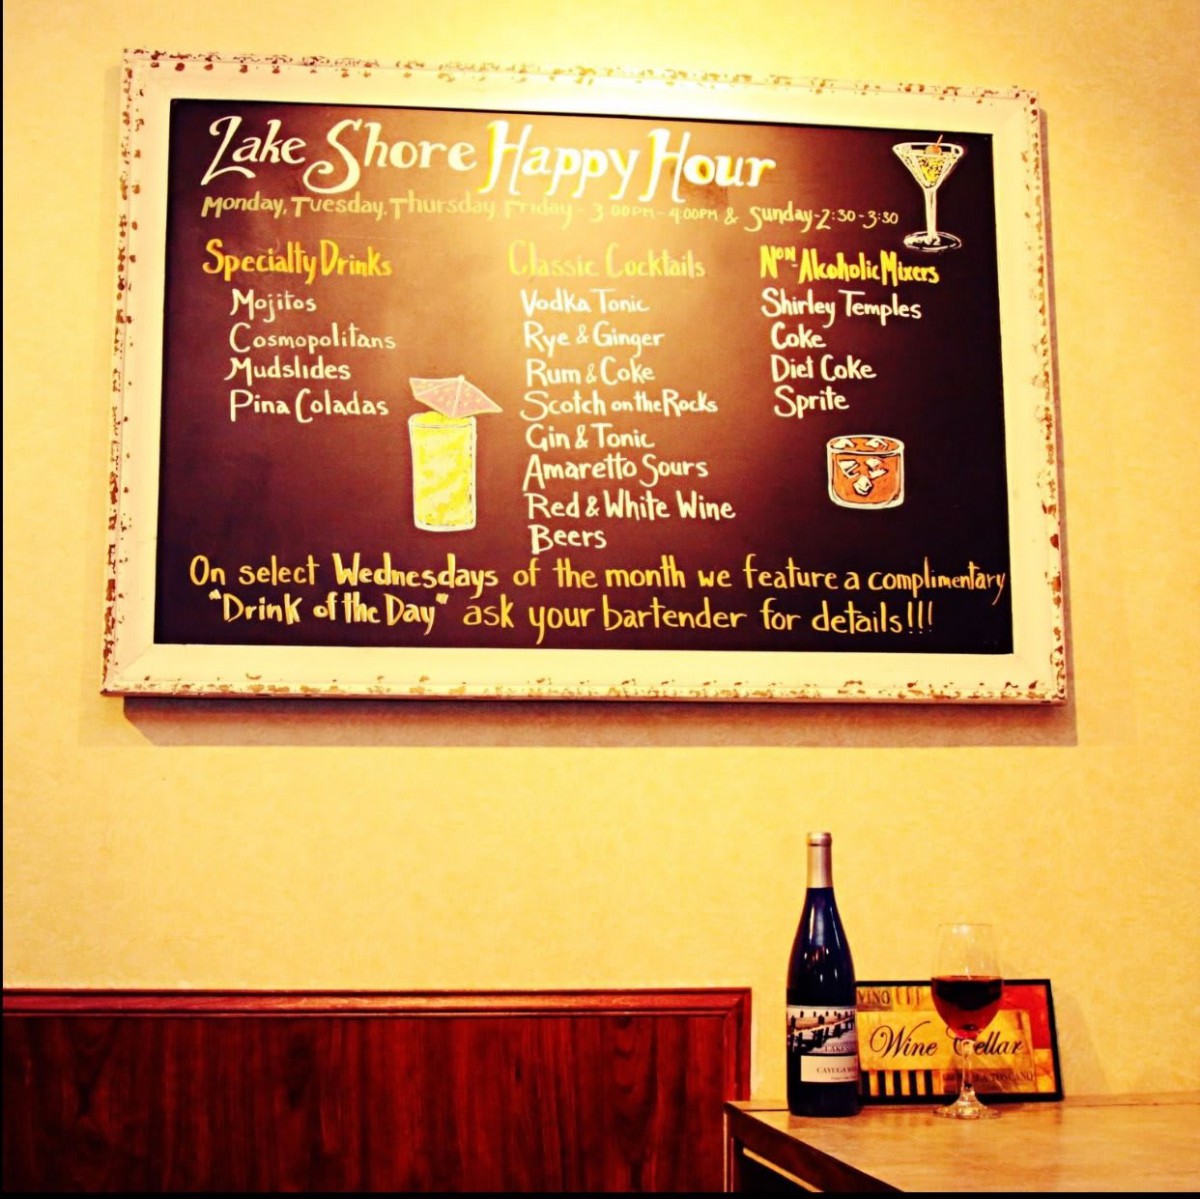 Lake Shore Happy Hour
Monday, Tuesday, Thursday, Friday - 3:00PM - 4:00PM & Sunday - 2:30 - 3:30
Specialty Drinks
Mojitos
Cosmopolitans
Mudslides
Pina Coladas
Classic Cocktails
Vodka Tonic
Rye & Ginger
Rum & Coke
Scotch on the Rocks
Gin & Tonic
Amaretto Sours
Red & White Wine
Beers
Non-Alcoholic Mixers
Shirley Temples
Coke
Diet Coke
Sprite
On select Wednesdays of the month we feature a complimentary
"Drink of the Day" ask your bartender for details!!!
VINO
Wine Cellar
TOSCANO
CAYUGA